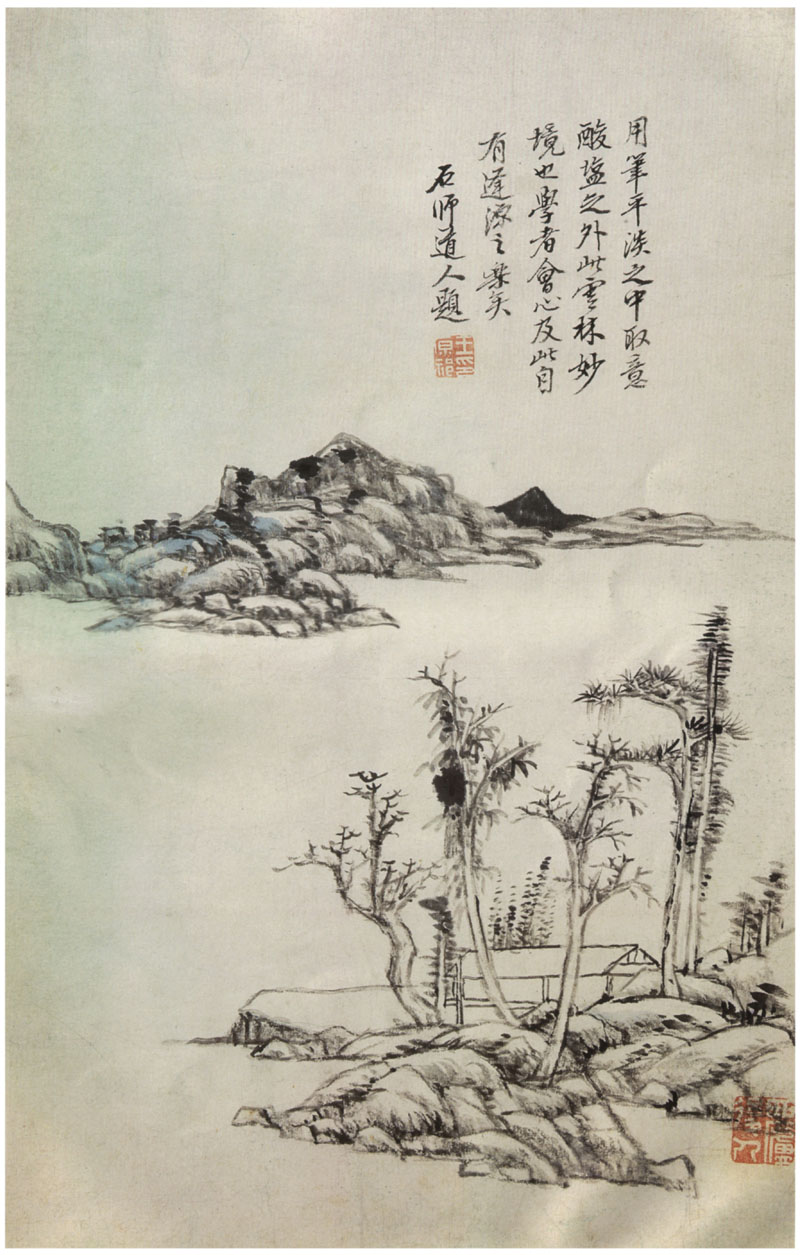 用筆平淡之中取意
酸塩之外此雲林妙
境也學者會心及此自
有逢源之樂矣
石師道人題
王印